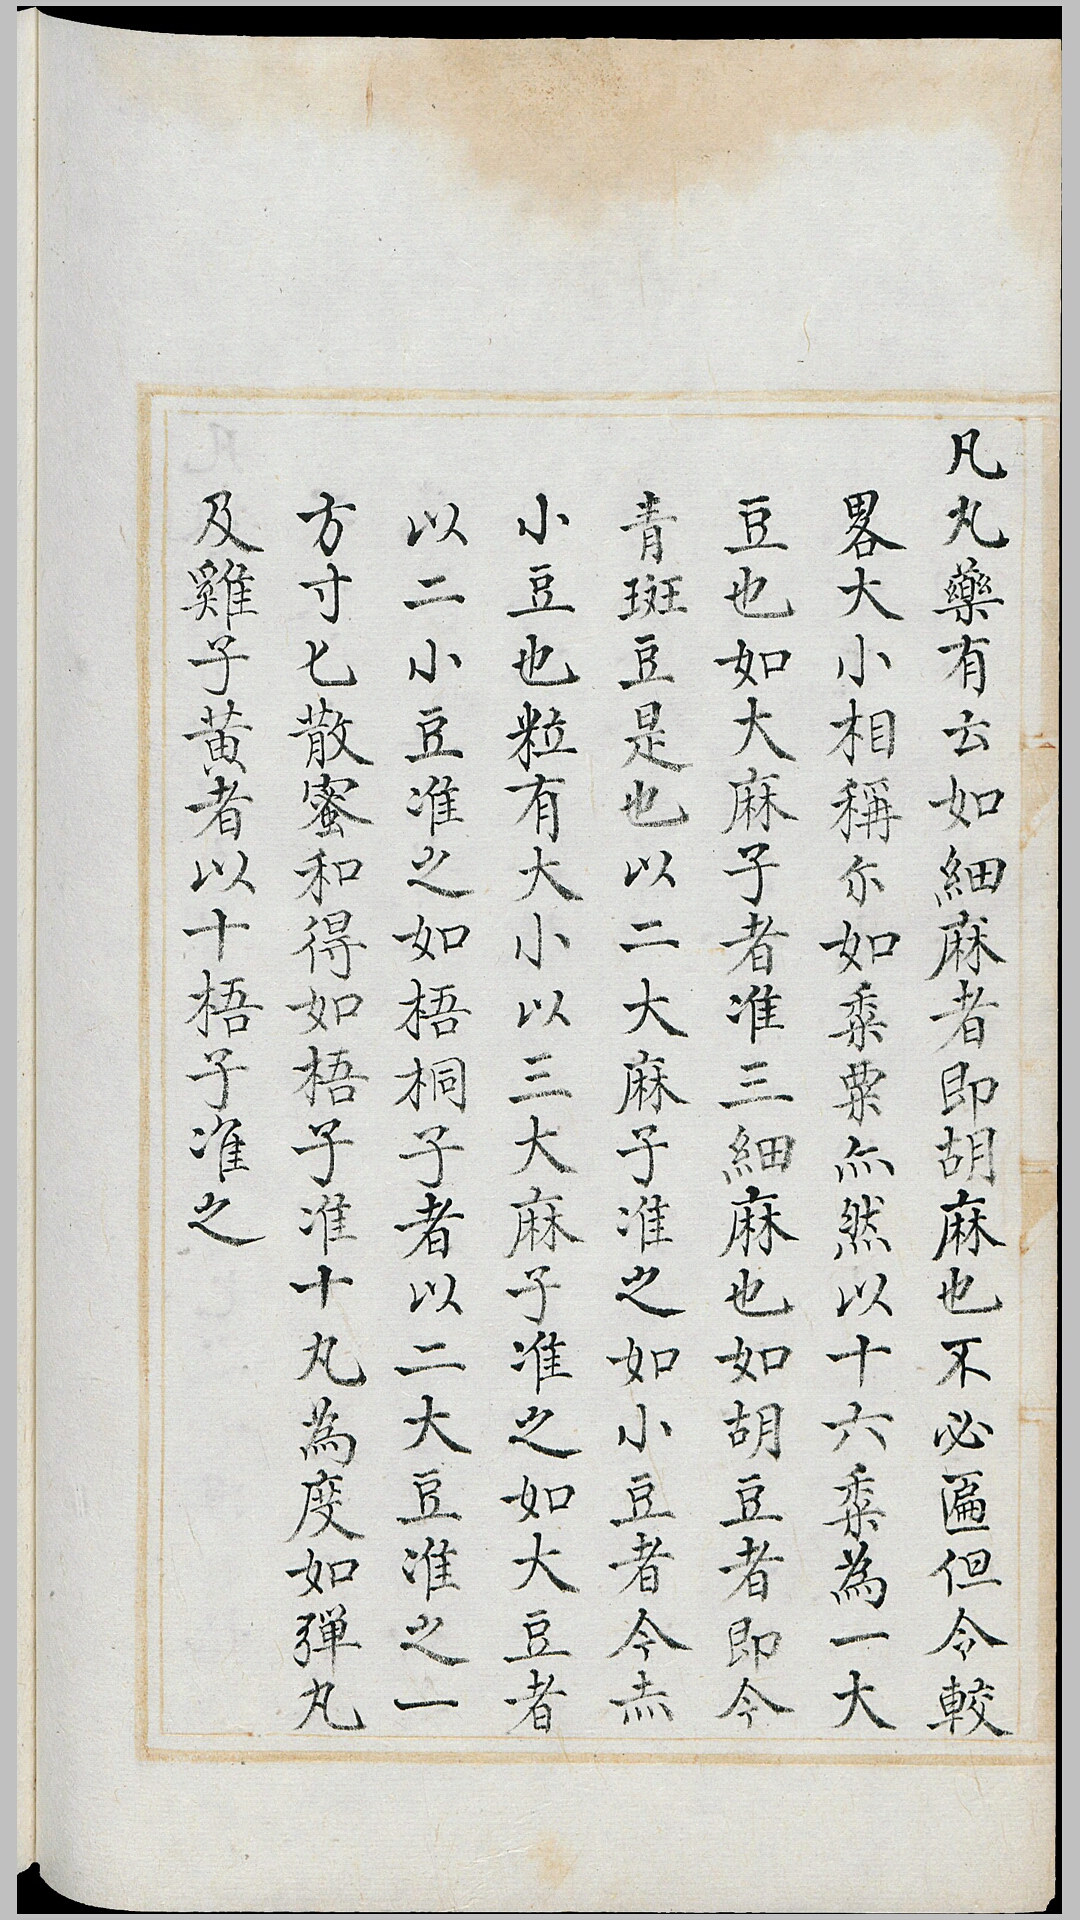 凡丸藥有云如細麻者即胡麻也不必匾但令較
畧大小相稱尓如黍粟亦然以十六黍為一大
豆也如大麻子者准三細麻也如胡豆者即今
青斑豆是也以二大麻子准之如小豆者今赤
小豆也粒有大小以三大麻子准之如大豆者
以二小豆准之如梧桐子者以二大豆准之一
方寸匕散蜜和得如梧子准十丸為度如弹丸
及雞子黄者以十梧子准之